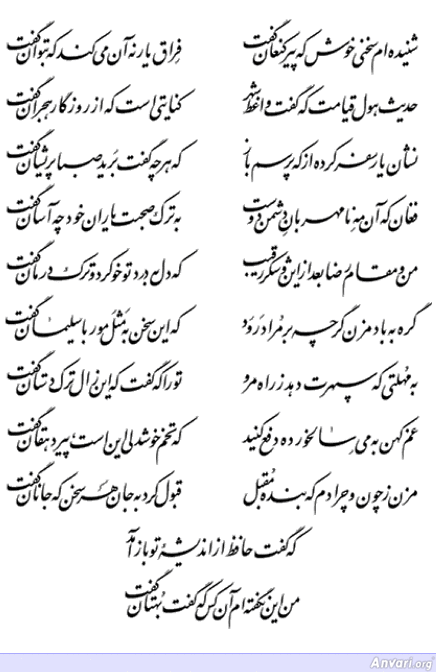 شنیده‌ام سخنی خوش که پیر کنعان گفت
فراق یار نه آن می‌کند که بتوان گفت
حدیث هول قیامت که گفت واعظ شهر
کنایتی است که از روزگار هجران گفت
نشان یار سفر کرده از که پرسم باز
که هر چه گفت برید صبا پریشان گفت
فغان که آن مه نامهربان دشمن دوست
به ترک صحبت یاران خود چه آسان گفت
من و مقام رضا بعد از این و شکر رقیب
که دل به درد تو خو کرد و ترک درمان گفت
گره به باد مزن گرچه بر مراد رود
که این سخن به مثل مور با سلیمان گفت
به مهلتی که سپهرت دهد ز راه مرو
تو را که گفت که این زال ترک دستان گفت
غم کهن به می سالخورده دفع کنید
که تخم خوشدلی این است پیر دهقان گفت
مزن ز چون و چرا دم که بنده مقبل
قبول کرد به جان هر سخن که جانان گفت
که گفت حافظ از اندیشهٔ تو باز آمد
من این نگفته‌ام آن کس که گفت بهتان گفت
Anvari.org